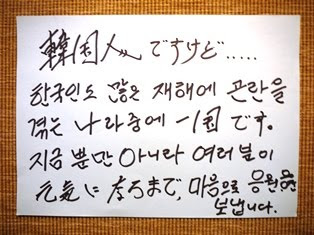 韓国人 ですけど.....
한국인도 많은 재해에 곤란을
겪는 나라중에 一国です。
지금 뿐만 아니라 여러분이
元気になるまで, 마음으로 응원을
보냅니다.